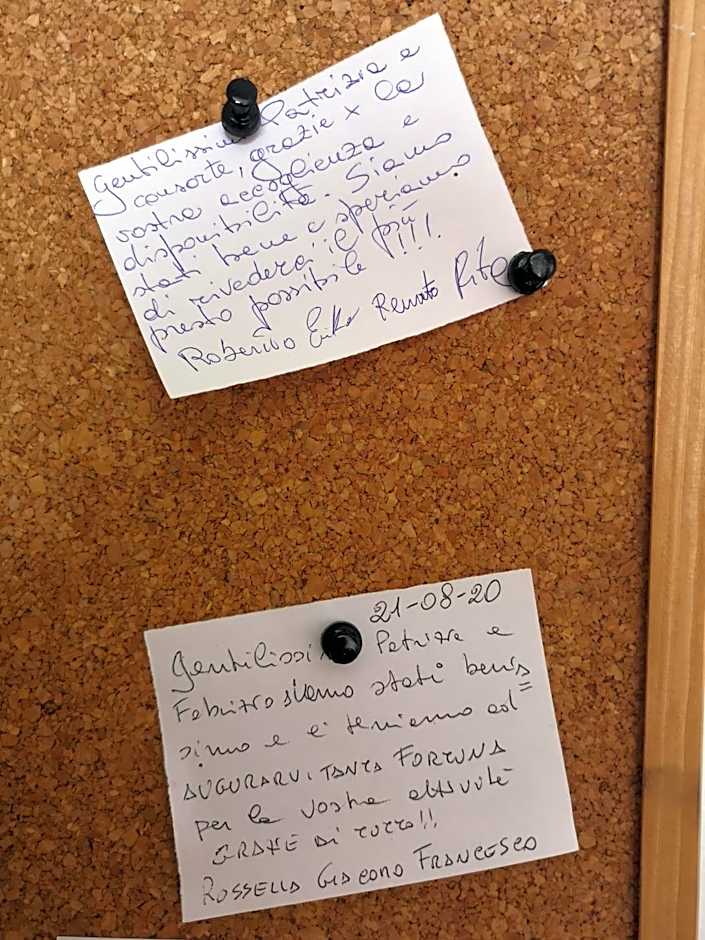 Gentilissimi Patrizia e
consorte, grazie x la
vostra accoglienza e
disponibilità. Siamo
stati bene e speriamo
di rivederci il più
presto possibile !!!
Roberto Erika Renato Rita
21-08-20
Gentilissi Patrizia e
Fabrizio siamo stati benis
simo e ci teniamo ad =
AUGURARVI TANTA FORTUNA
per la vostra attività
GRAZIE DI TUTTO!!
ROSSELLA GIACOMO FRANCESCO